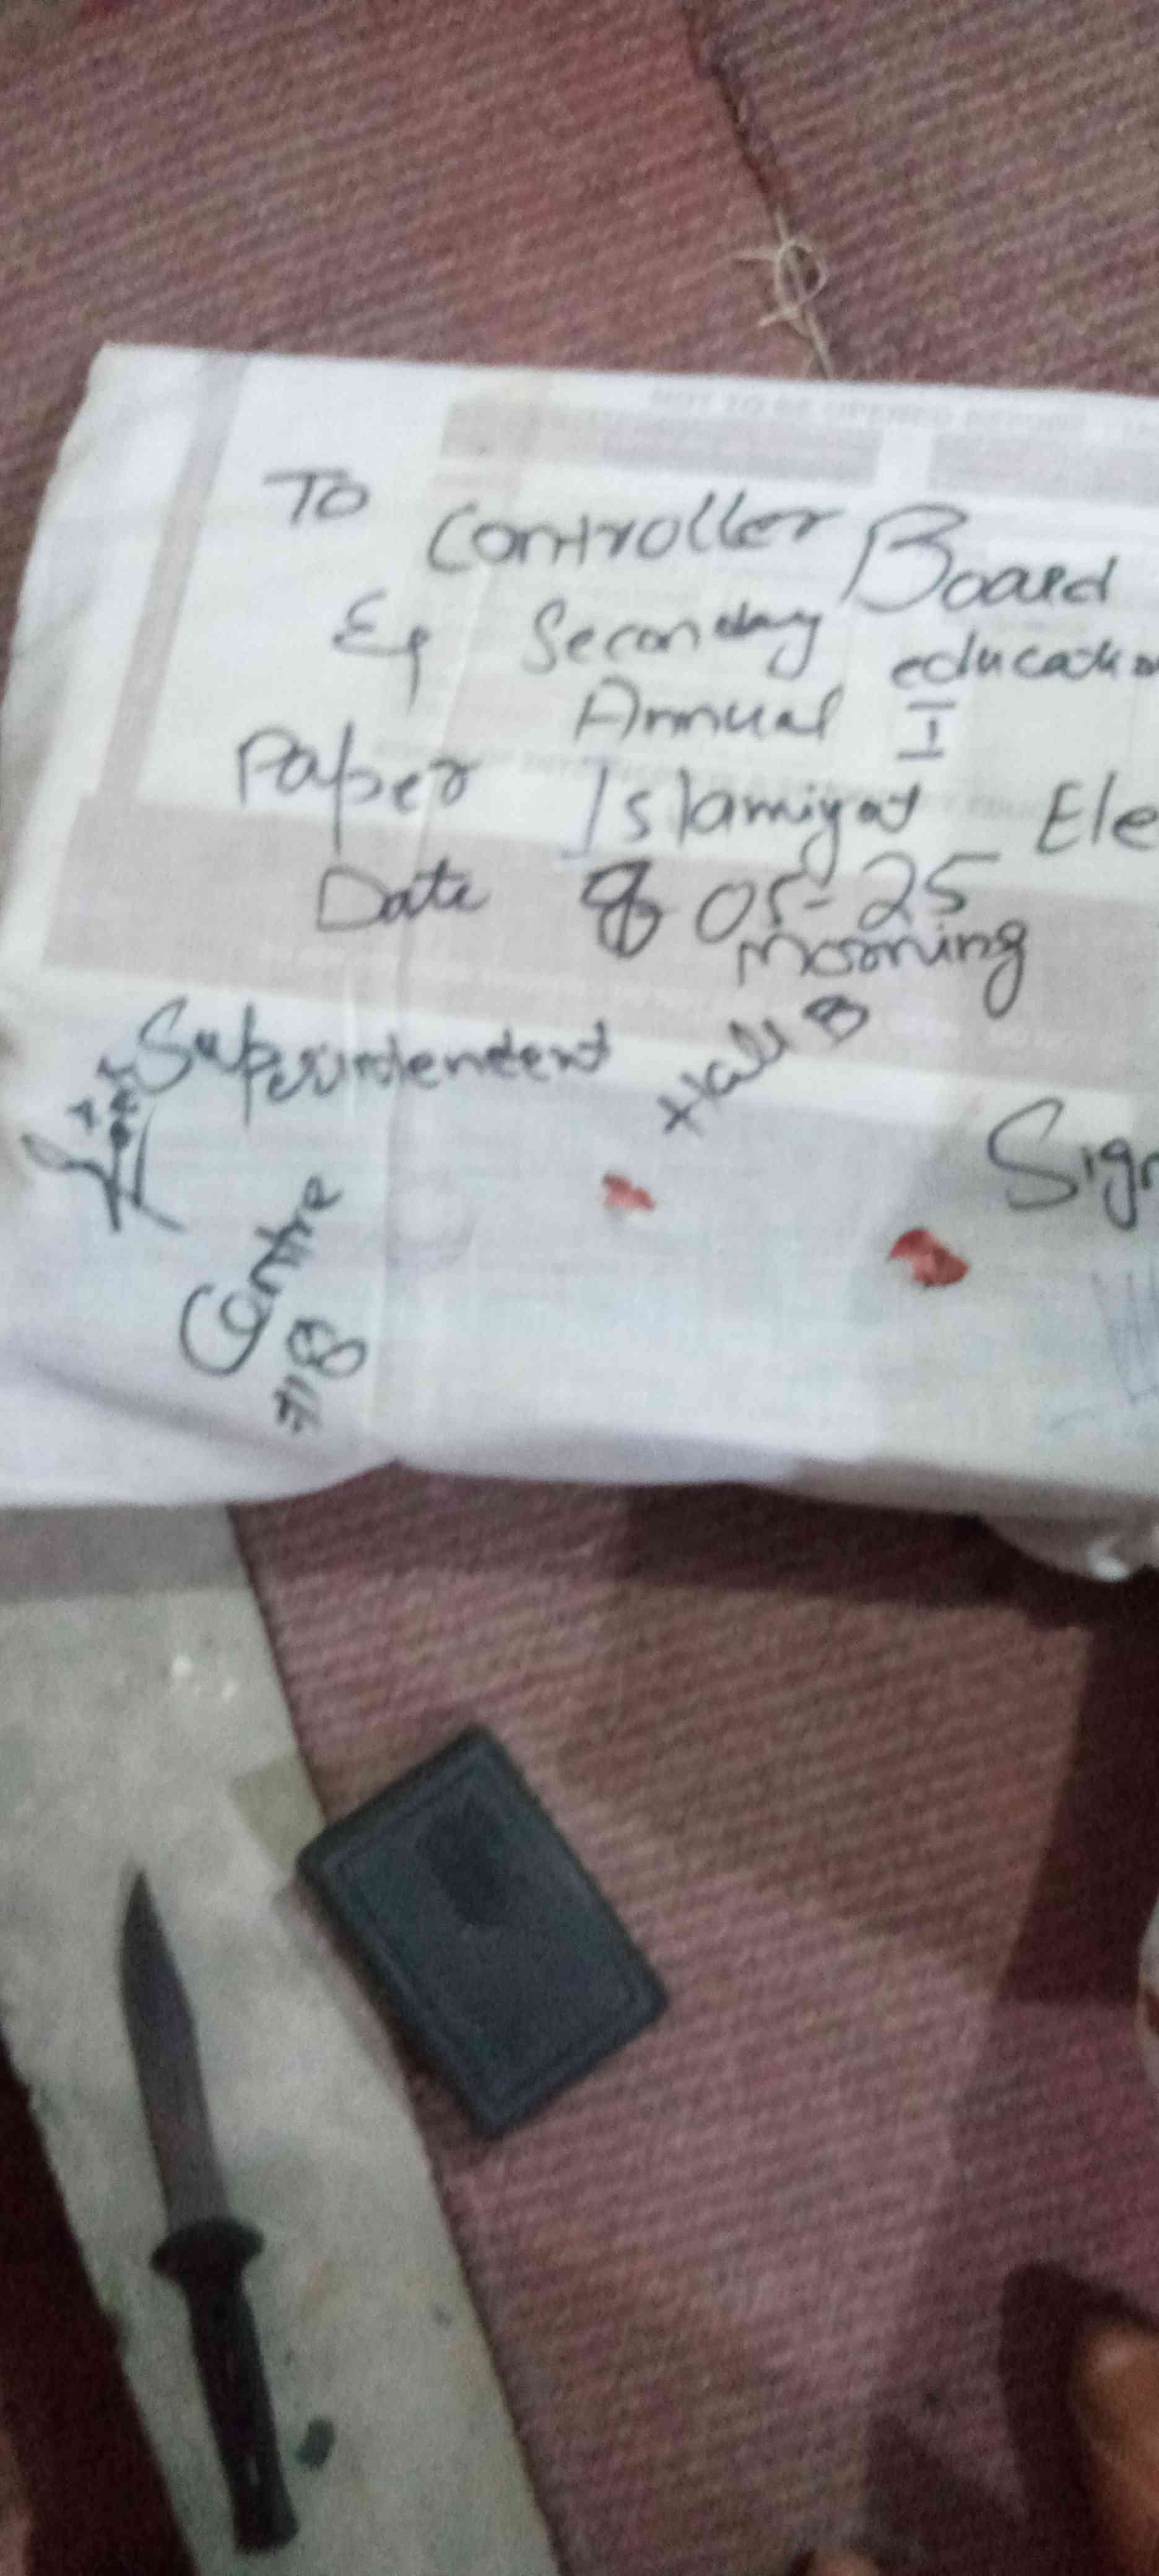 NOT TO BE OPENED BEFORE
To
Controller Board
& Secondary education
Annual I
Paper Islamiyat Ele
Date 8 05-25
Morning
Superintendent Hall B
Sign
Centre